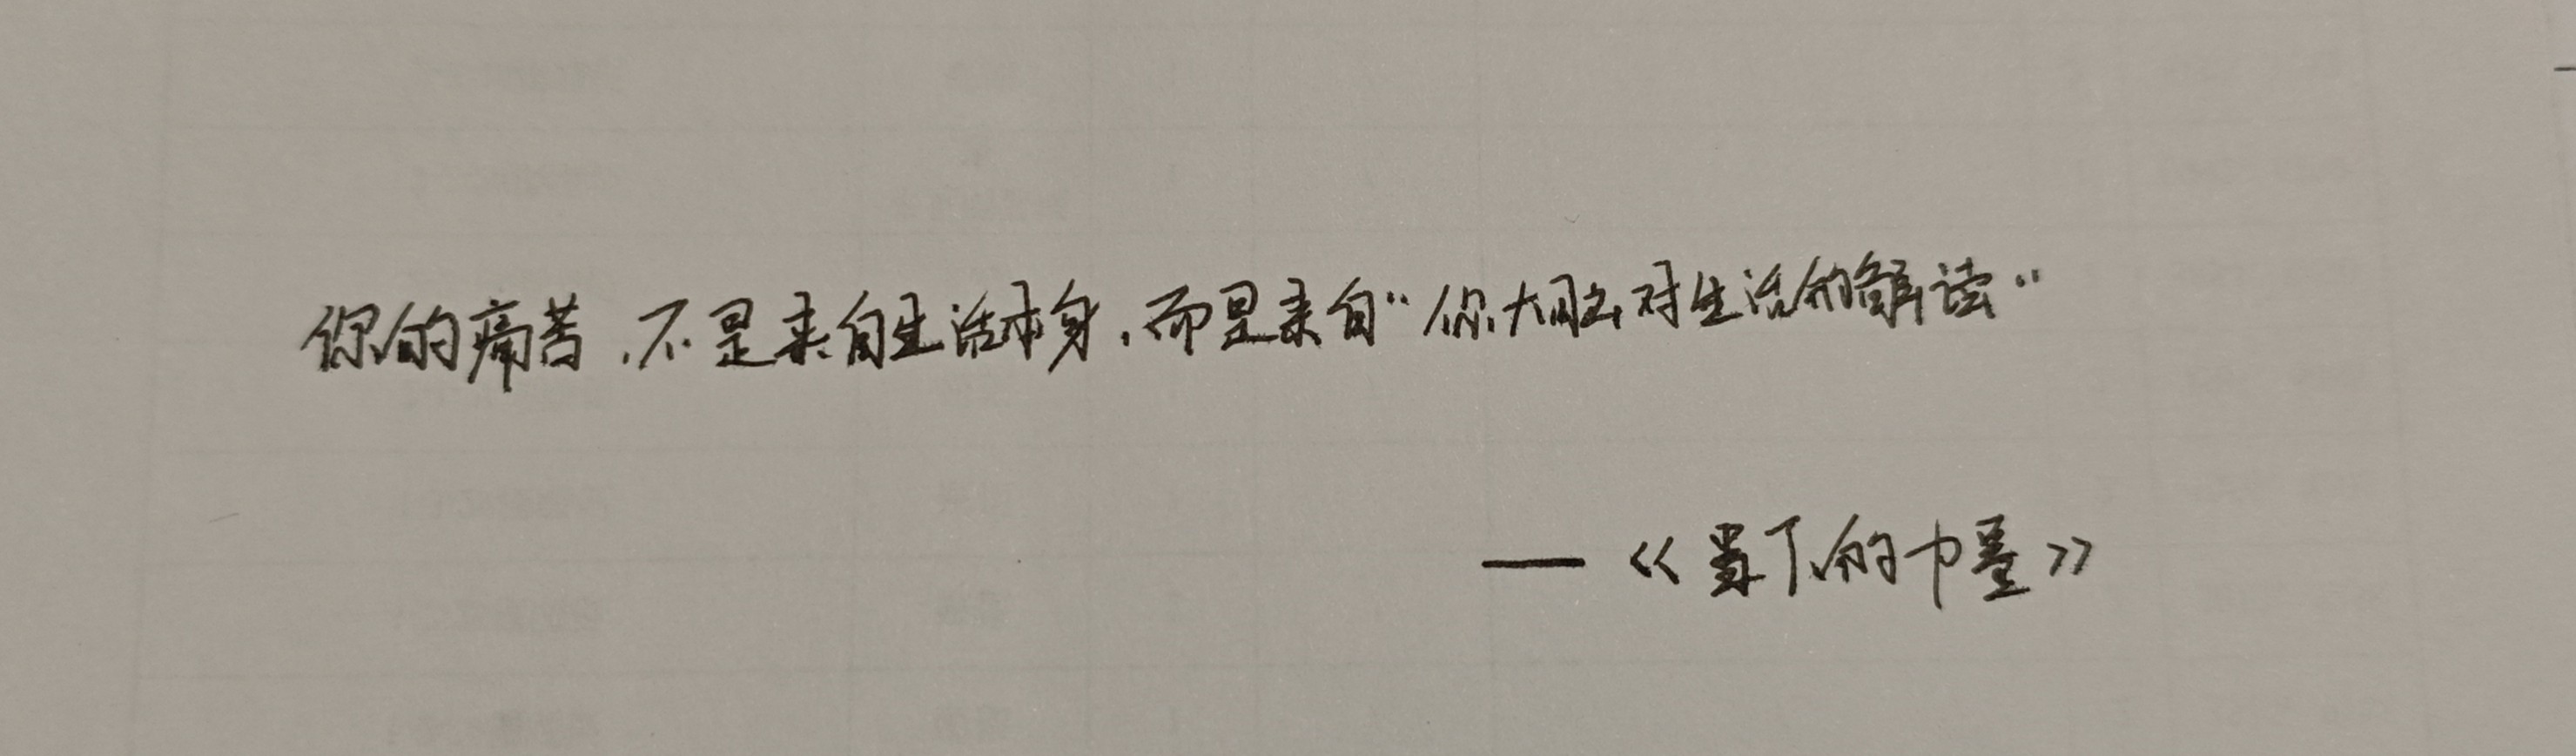 你的痛苦,不是来自生活本身,而是来自“你大脑对生活的解读“
—《当下的力量》